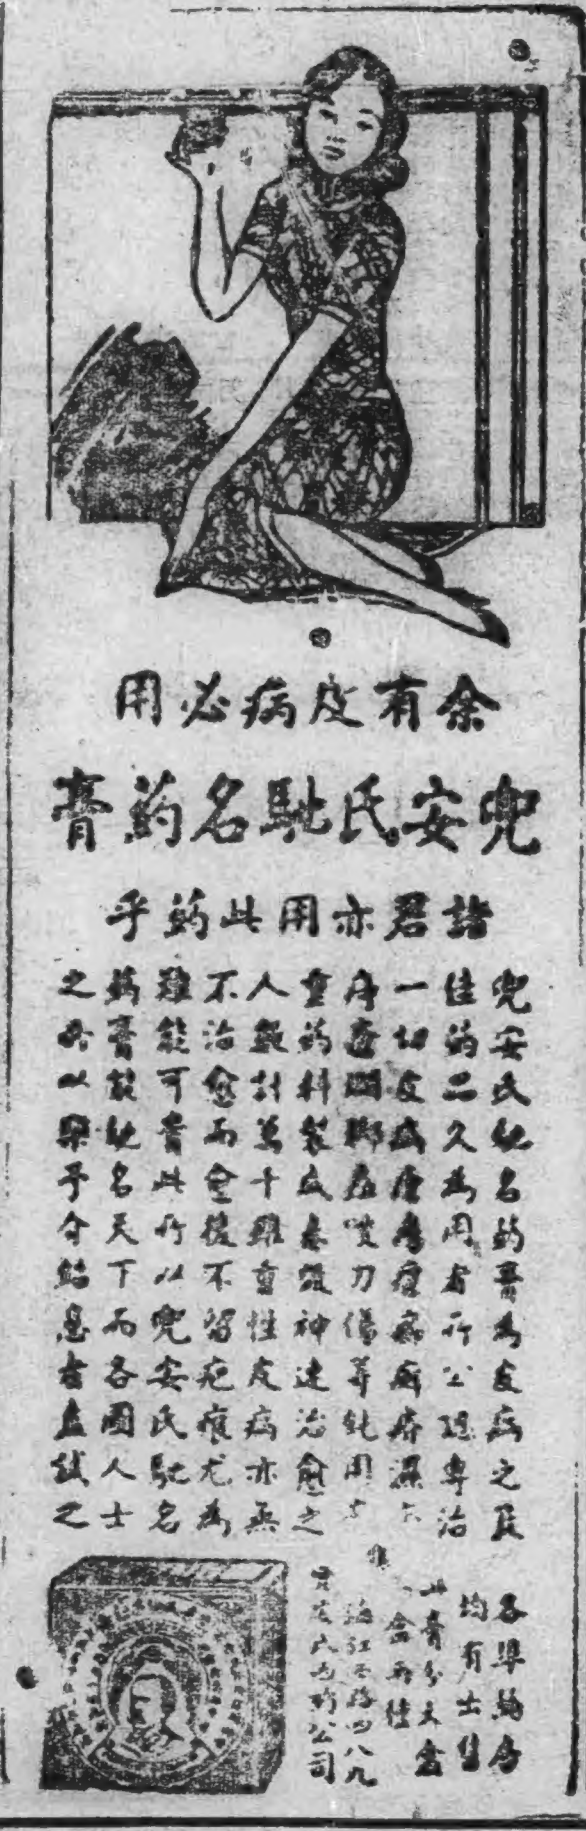 余有皮病必用
兜安氏馳名药膏
諸君亦用此药乎
兜安氏馳名药膏為皮病之最
佳药品久為用者所公認專治
一切皮膚瘡瘍癬疥濕
瘡爛脚刀傷等純用
重药料製成奏效神速治愈之
人數計萬十難重性皮病亦無
不治愈而愈後不留疤痕尤為
難能可貴此所以兜安氏馳名
药膏能馳名天下而各國人士
之所以樂予介紹患者盍試之
各埠药房
均有出售
此膏分大盒
盒兩種
海江西路四八九
兜安氏西药公司